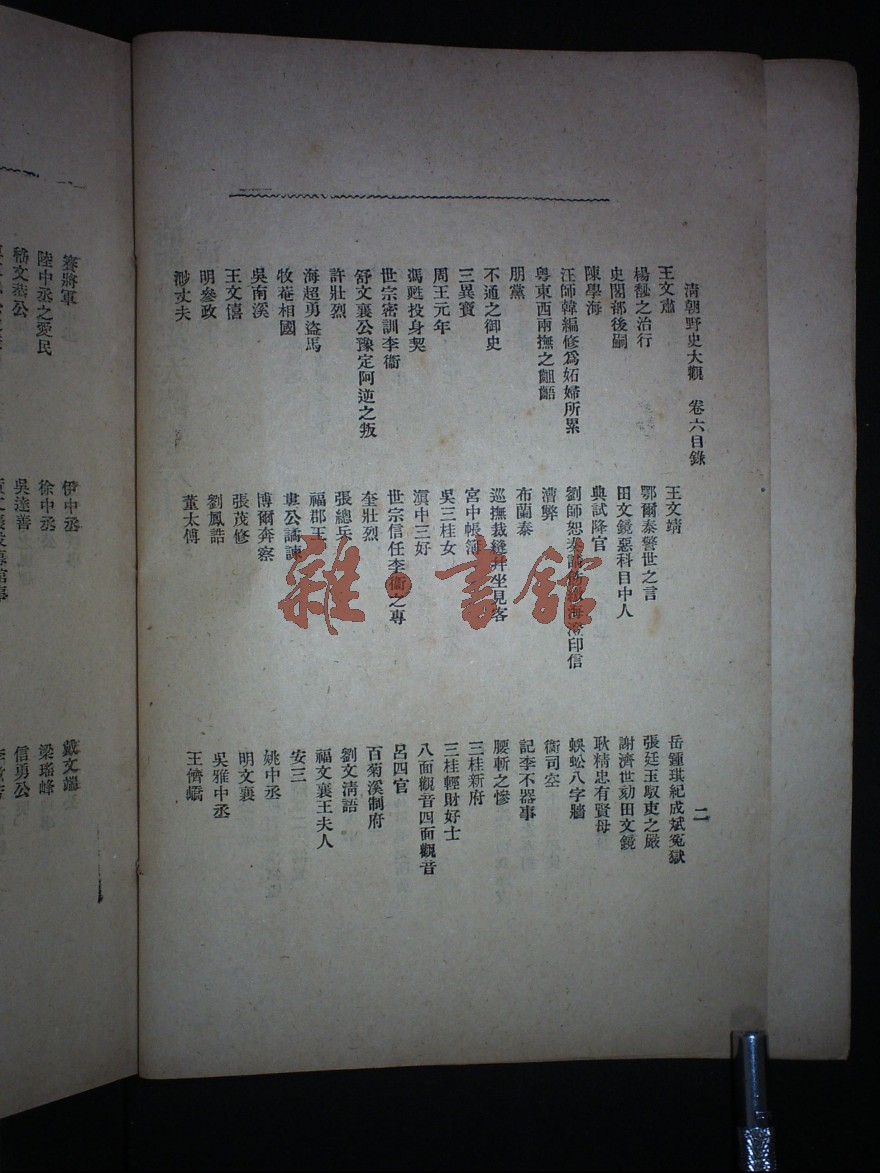 清朝野史大觀 卷六目錄 二
王文肅 王文靖 岳鍾琪紀成斌冤獄
楊馝之治行 鄂爾泰警世之言 張廷玉馭吏之嚴
史閣部後嗣 田文鏡惡科目中人 謝濟世劾田文鏡
陳學海 典試降官 耿精忠有賢母
汪師韓編修爲妬婦所累 劉師恕 海澄印信 蜈蚣八字牆
粵東西兩撫之齟齬 漕弊 衞司空
朋黨 布蘭泰 記李不器事
不通之御史 巡撫裁縫並坐見客 腰斬之慘
三異寶 宮中帳簿 三桂新府
周王元年 吳三桂女 三桂輕財好士
馮甦投身契 滇中三好 八面觀音四面觀音
世宗密訓李衞 世宗信任李衞之專 呂四官
舒文襄公豫定阿逆之叛 奎壯烈 百菊溪制府
許壯烈 張總兵 劉文清語
海超勇盜馬 福郡王 福文襄王夫人
牧菴相國 婁公譎諫 安三
吳南溪 博爾奔察 姚中丞
王文僖 張茂修 明文襄
明參政 劉鳳誥 吳雅中丞
渺丈夫 董太傅 王儕嶠
賽將軍 伊中丞 戴文端
陸中丞之愛民 徐中丞 梁瑤峰
嵇文恭公 吳達善 信勇公
雜·書館